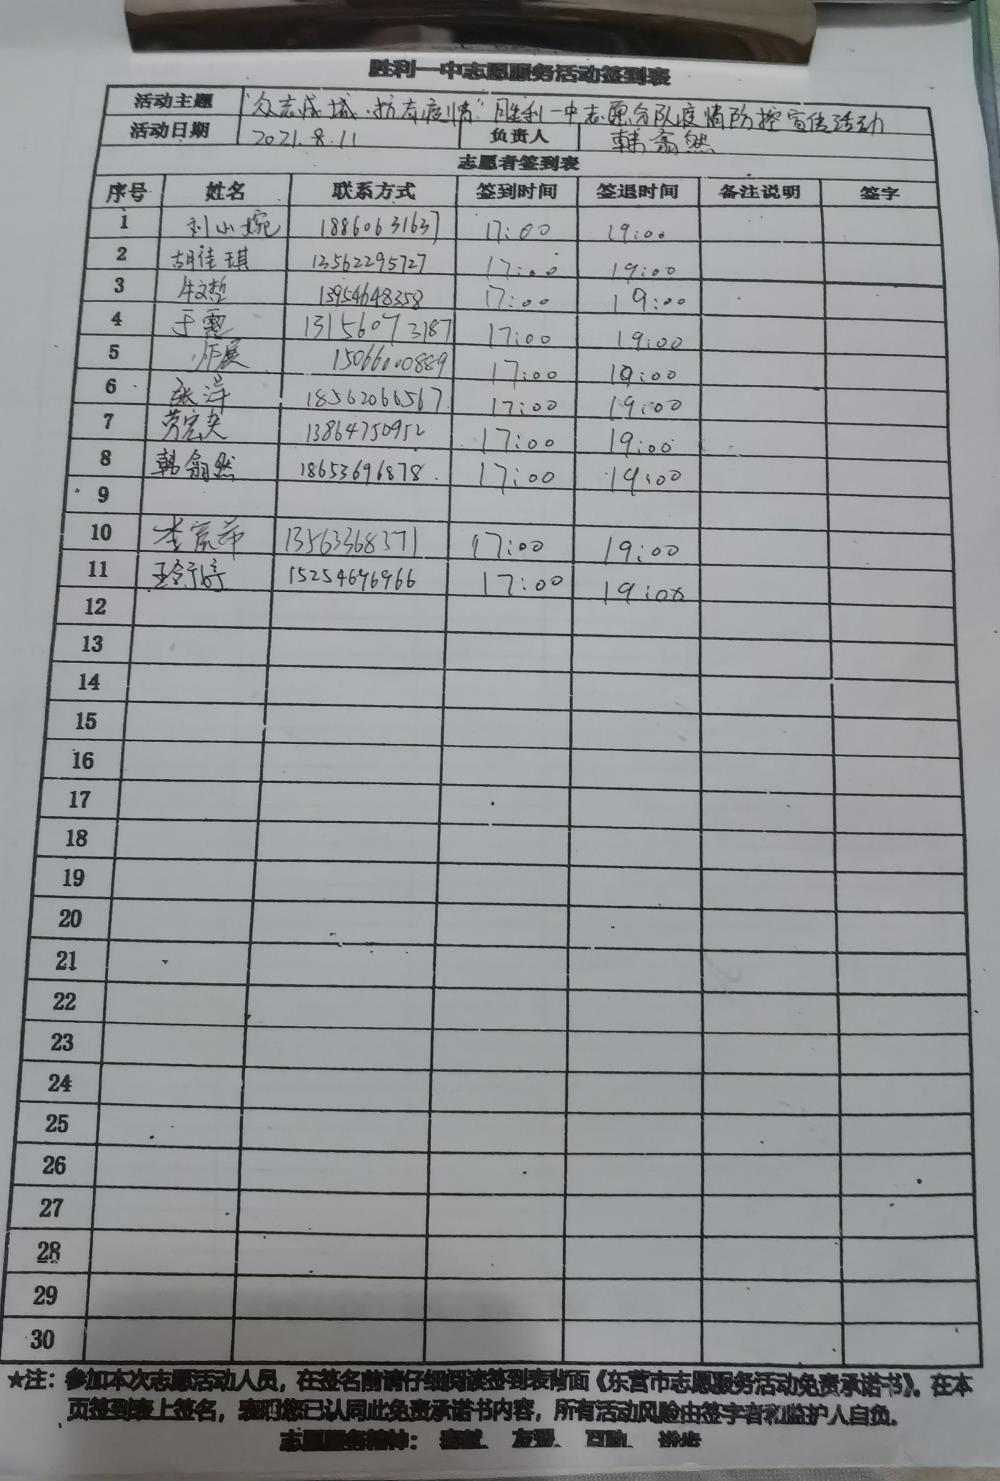 胜利一中志愿服务活动签到表
活动主题 "众志成城·抗击疫情"胜利一中志愿分队疫情防控宣传活动
活动日期 2021.8.11 负责人 韩翕然
志愿者签到表
序号 姓名 联系方式 签到时间 签退时间 备注说明 签字
1 刘小婉 18860631637 17:00 19:00
2 胡佳琪 13562295727 17:00 19:00
3 13954648358 17:00 19:00
4 于惠 13156073187 17:00 19:00
5 15066000889 17:00 19:00
6 张洋 18562066567 17:00 19:00
7 13864750952 17:00 19:00
8 韩翕然 18653696878 17:00 19:00
9
10 李宸希 13563368371 17:00 19:00
11 15254696966 17:00 19:00
12
13
14
15
16
17
18
19
20
21
22
23
24
25
26
27
28
29
30
★注：参加本次志愿活动人员，在签名前请仔细阅读签到表背面《东营市志愿服务活动免责承诺书》。在本
页签到表上签名，表明您已认同此免责承诺书内容，所有活动风险由签字者和监护人自负。
志愿服务精神：奉献、友爱、互助、进步